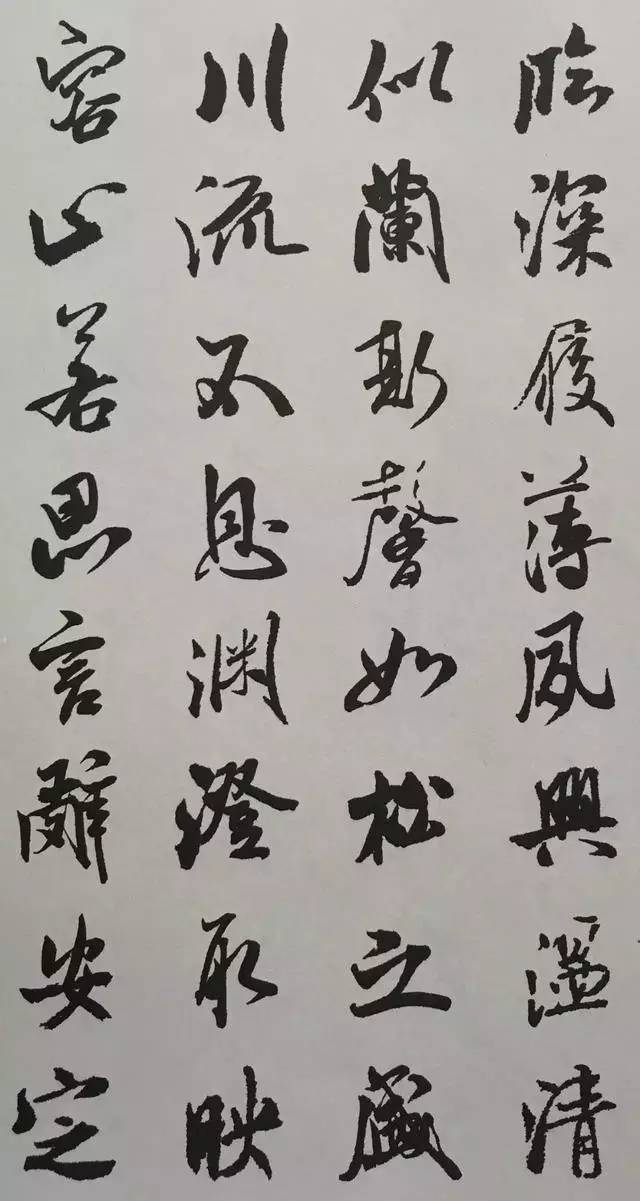 臨深履薄夙興溫清
似蘭斯馨如松之盛
川流不息渊澄取映
容止若思言辭安定